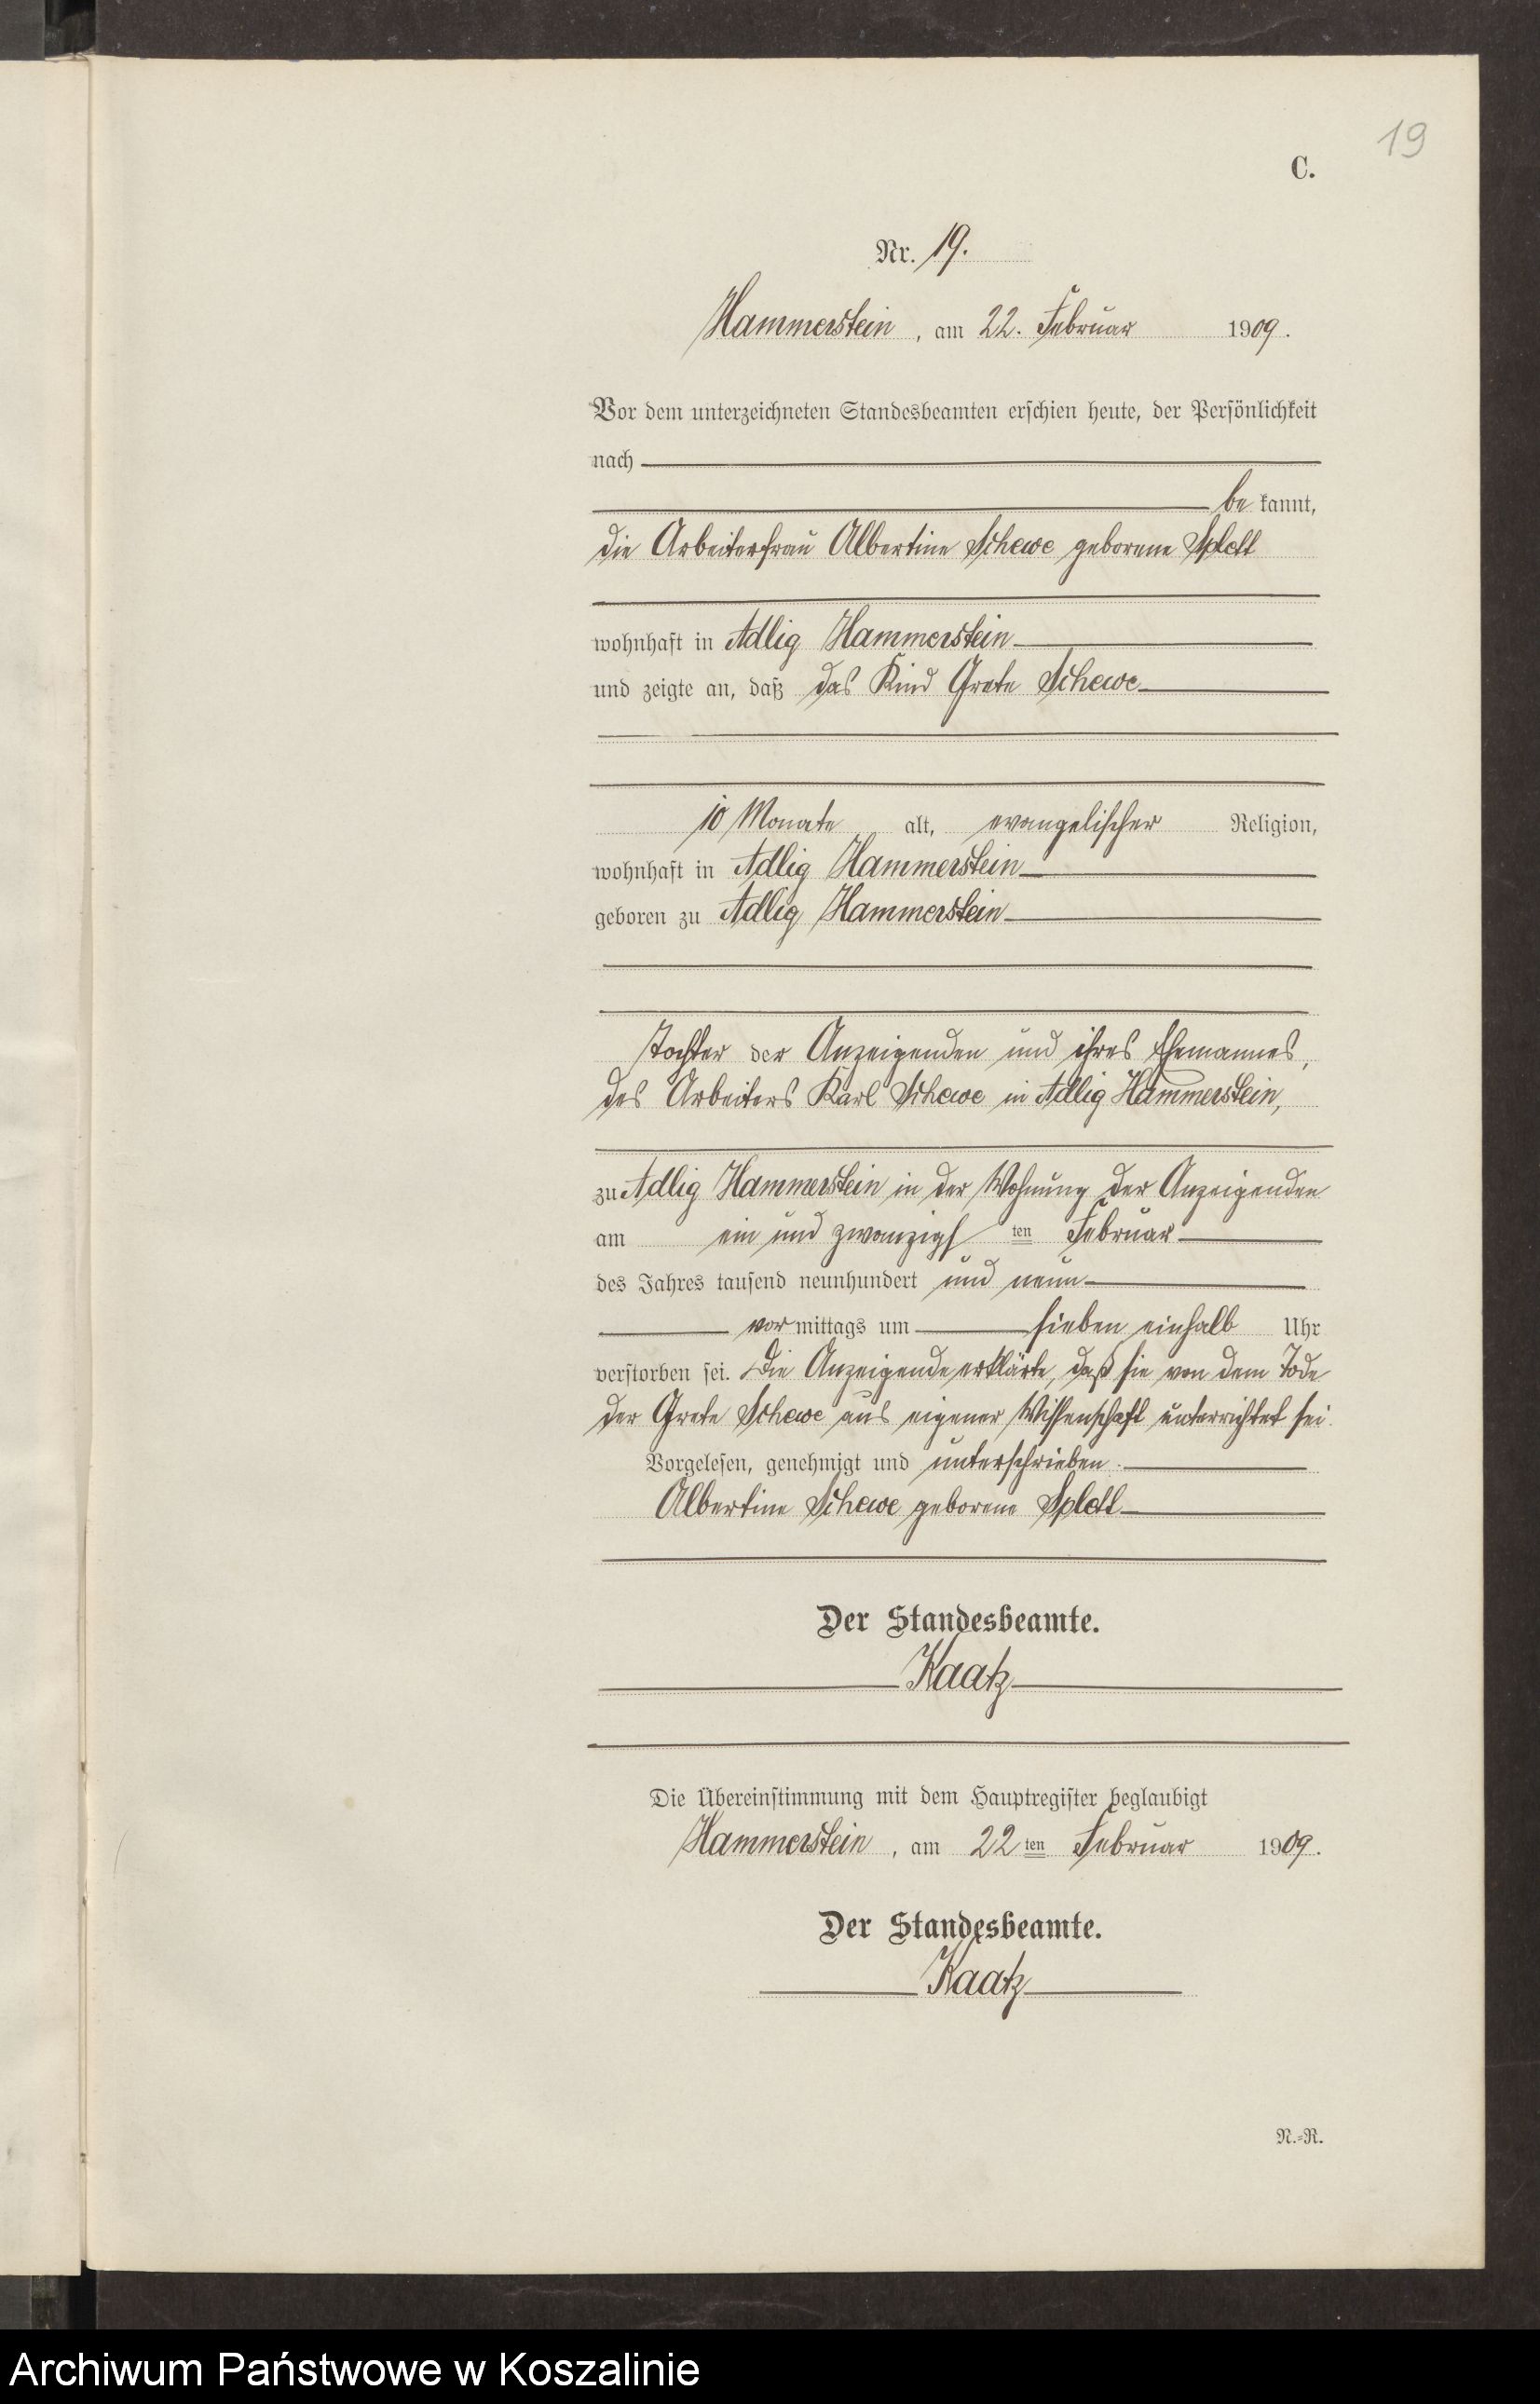 19
C.
Nr. 19.
Hammerstein, am 22. Februar 1909.
Vor dem unterzeichneten Standesbeamten erschien heute, der Persönlichkeit
nach
be kannt,
die Arbeiterfrau Albertine Schewe geborene Splett
wohnhaft in Adlig Hammerstein
und zeigte an, daß das Kind Grete Schewe
10 Monate alt, evangelischer Religion,
wohnhaft in Adlig Hammerstein
geboren zu Adlig Hammerstein
Tochter der Anzeigenden und ihres Ehemannes,
des Arbeiters Karl Schewe in Adlig Hammerstein,
zu Adlig Hammerstein in der Wohnung der Anzeigenden
am ein und zwanzigs ten Februar
des Jahres tausend neunhundert und neun
vor mittags um sieben einhalb Uhr
verstorben sei. Die Anzeigende erklärte, daß sie von dem Tode
der Grete Schewe aus eigener Wissenschaft unterrichtet sei.
Vorgelesen, genehmigt und unterschrieben.
Albertine Schewe geborene Splett
Der Standesbeamte.
Kaatz
Die Übereinstimmung mit dem Hauptregister beglaubigt
Hammerstein, am 22 ten Februar 1909.
Der Standesbeamte.
Kaatz
N.=R.
Archiwum Państwowe w Koszalinie